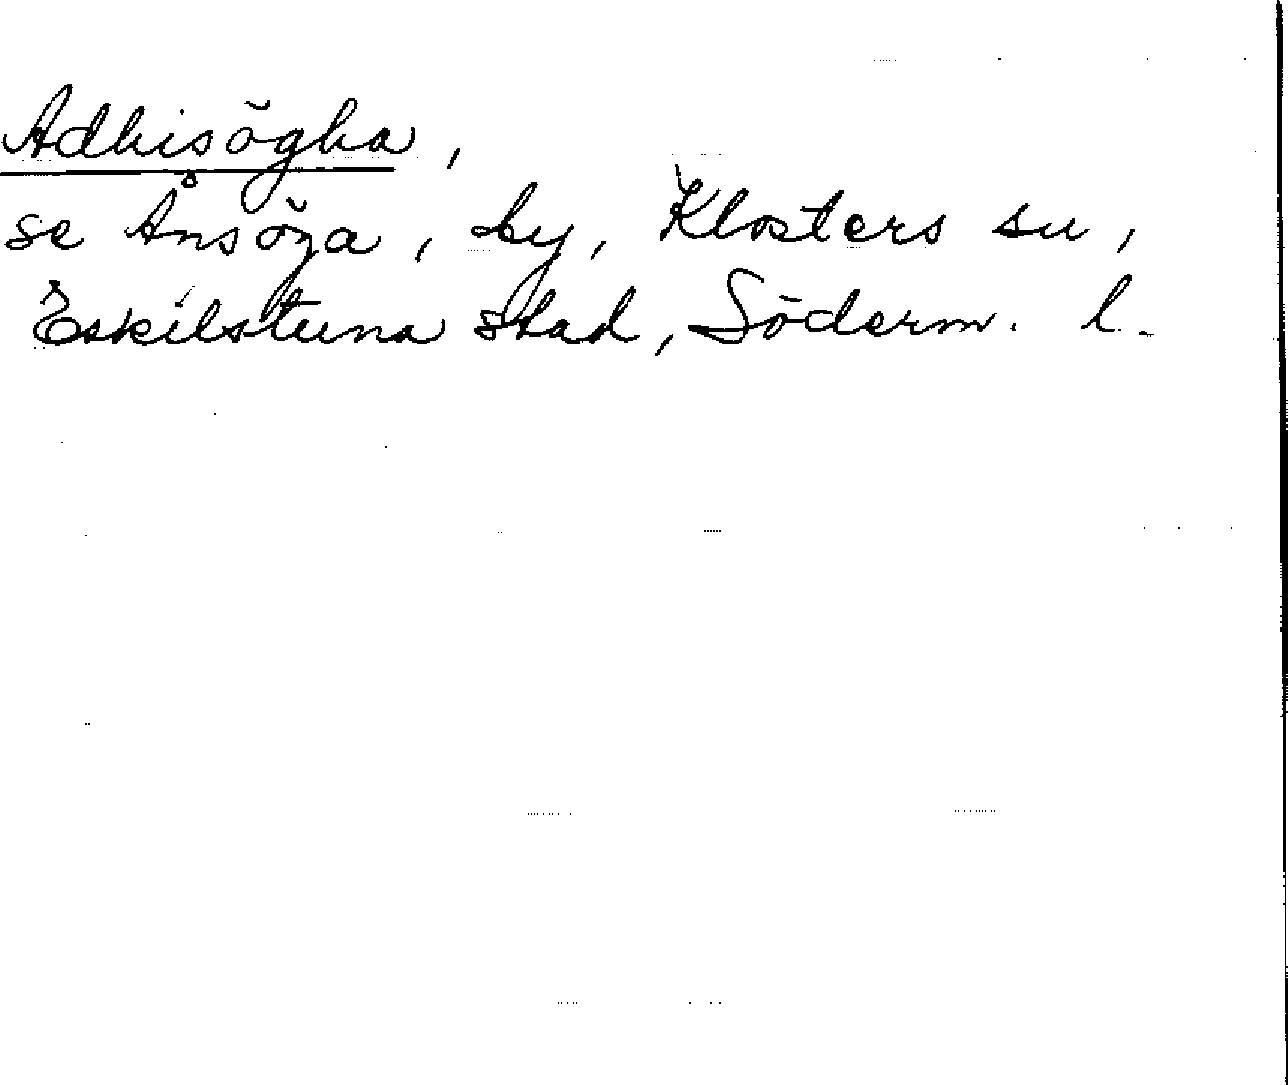 Adhisögha,
se Ånsöga, by, Klosters sn,
Eskilstuna stad, Söderm. l.